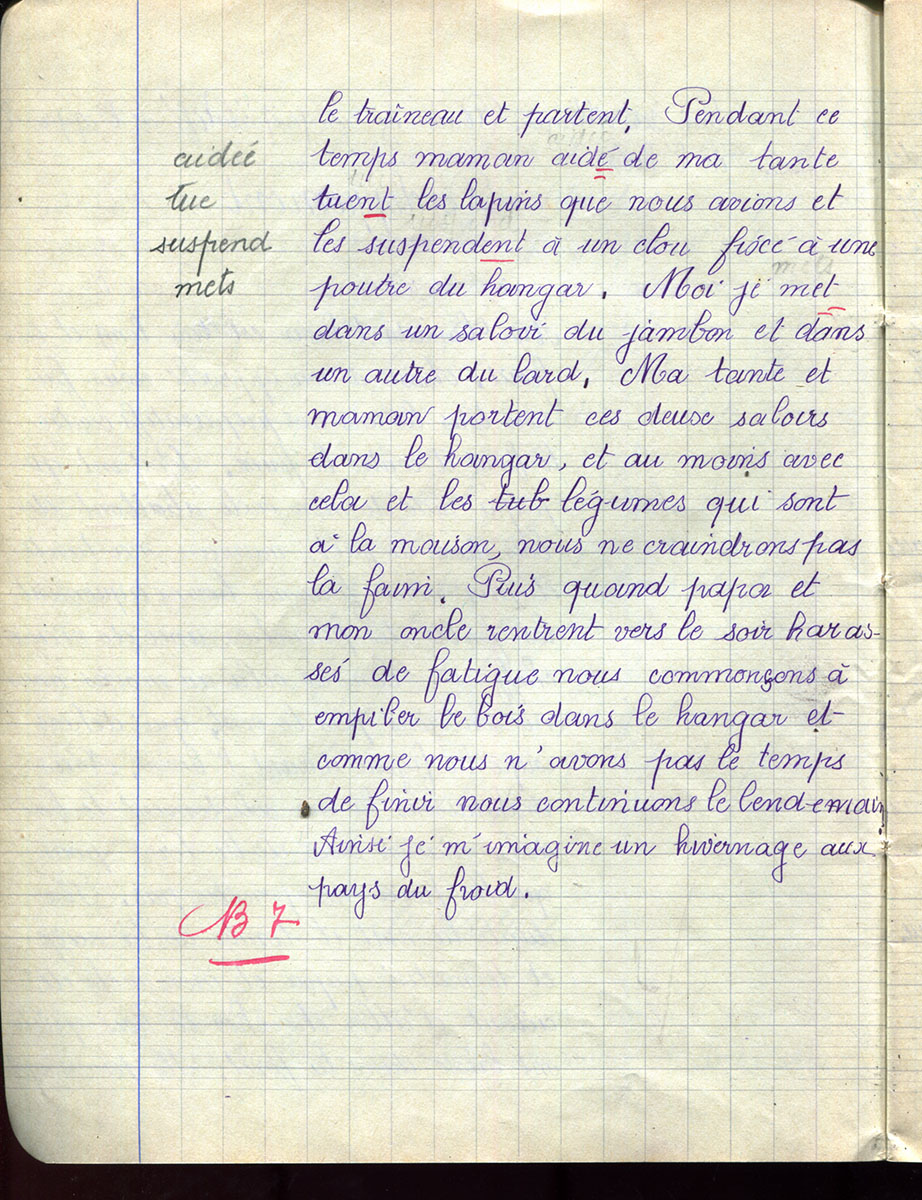 le traîneau et partent. Pendant ce
aidée
temps maman aidé de ma tante
tue
tuent les lapins que nous avions et
suspend
les suspendent à un clou fixé à une
mets
poutre du hangar. Moi je met
dans un saloir du jambon et dans
un autre du lard. Ma tante et
maman portent ces deux saloirs
dans le hangar, et au moins avec
cela et les tub légumes qui sont
à la maison, nous ne craindrons pas
la faim. Puis quand papa et
mon oncle rentrent vers le soir haras-
sés de fatigue nous commençons à
empiler le bois dans le hangar et
comme nous n'avons pas le temps
de finir nous continuons le lendemain
Ainsi je m'imagine un hivernage aux
pays du froid.
B 7